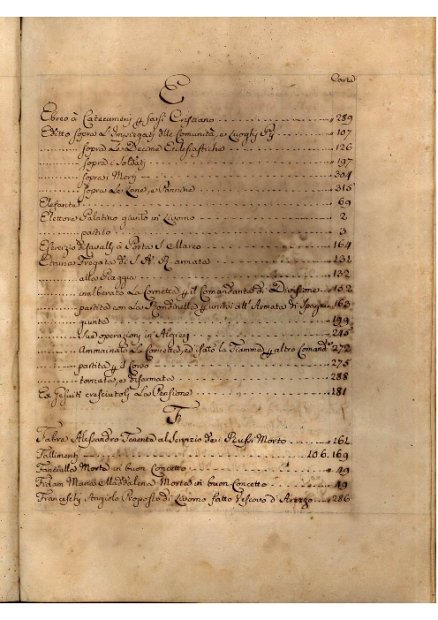 Carte
E
Ebreo à Catecumeni p farsi Cristiano 289
Editto sopra l'Impiegati delle Comunità, e Luoghi Pij 107
sopra Le Decime Eclesiastiche 126
sopra i Soldati 197
sopra i Morti 304
sopra Le Lane, e Pannine 315
Elefante 69
Elettore Palatino giunto in Livorno 2
partito 3
Esercizio di Cavalli à Porta S. Marco 164
Etruria Fregata di S. A. R. armata 131
alla Piaggia 132
inalberato La Cornetta p il Comandante di Divisione 152
partita con La Rondinella p unirsi all' Armata di Spagna 163
giunta 199
sue operazioni in Algieri 240
Ammainato La Cornetta, ed issato la Fiamma p altro Comand.te 272
partita p il Corso 275
tornata, e disarmata 288
Ex Gesuiti cresciutoli La Pensione 181
F
Fabri Alessandro Tenente al Servizio dei 162
Fallimenti 106. 169
Fanciulla Morta in buon Concetto 49
Maria Maddalena Morta in buon Concetto 49
Franceschi Angiolo Proposto di Livorno fatto Vescovo d'Arezzo 286